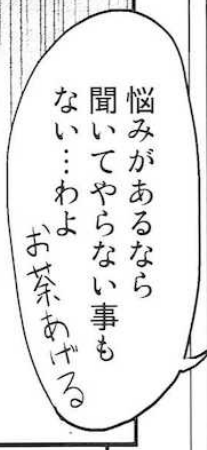 悩みがあるなら
聞いてやらない事も
ない…わよ
お茶あげる